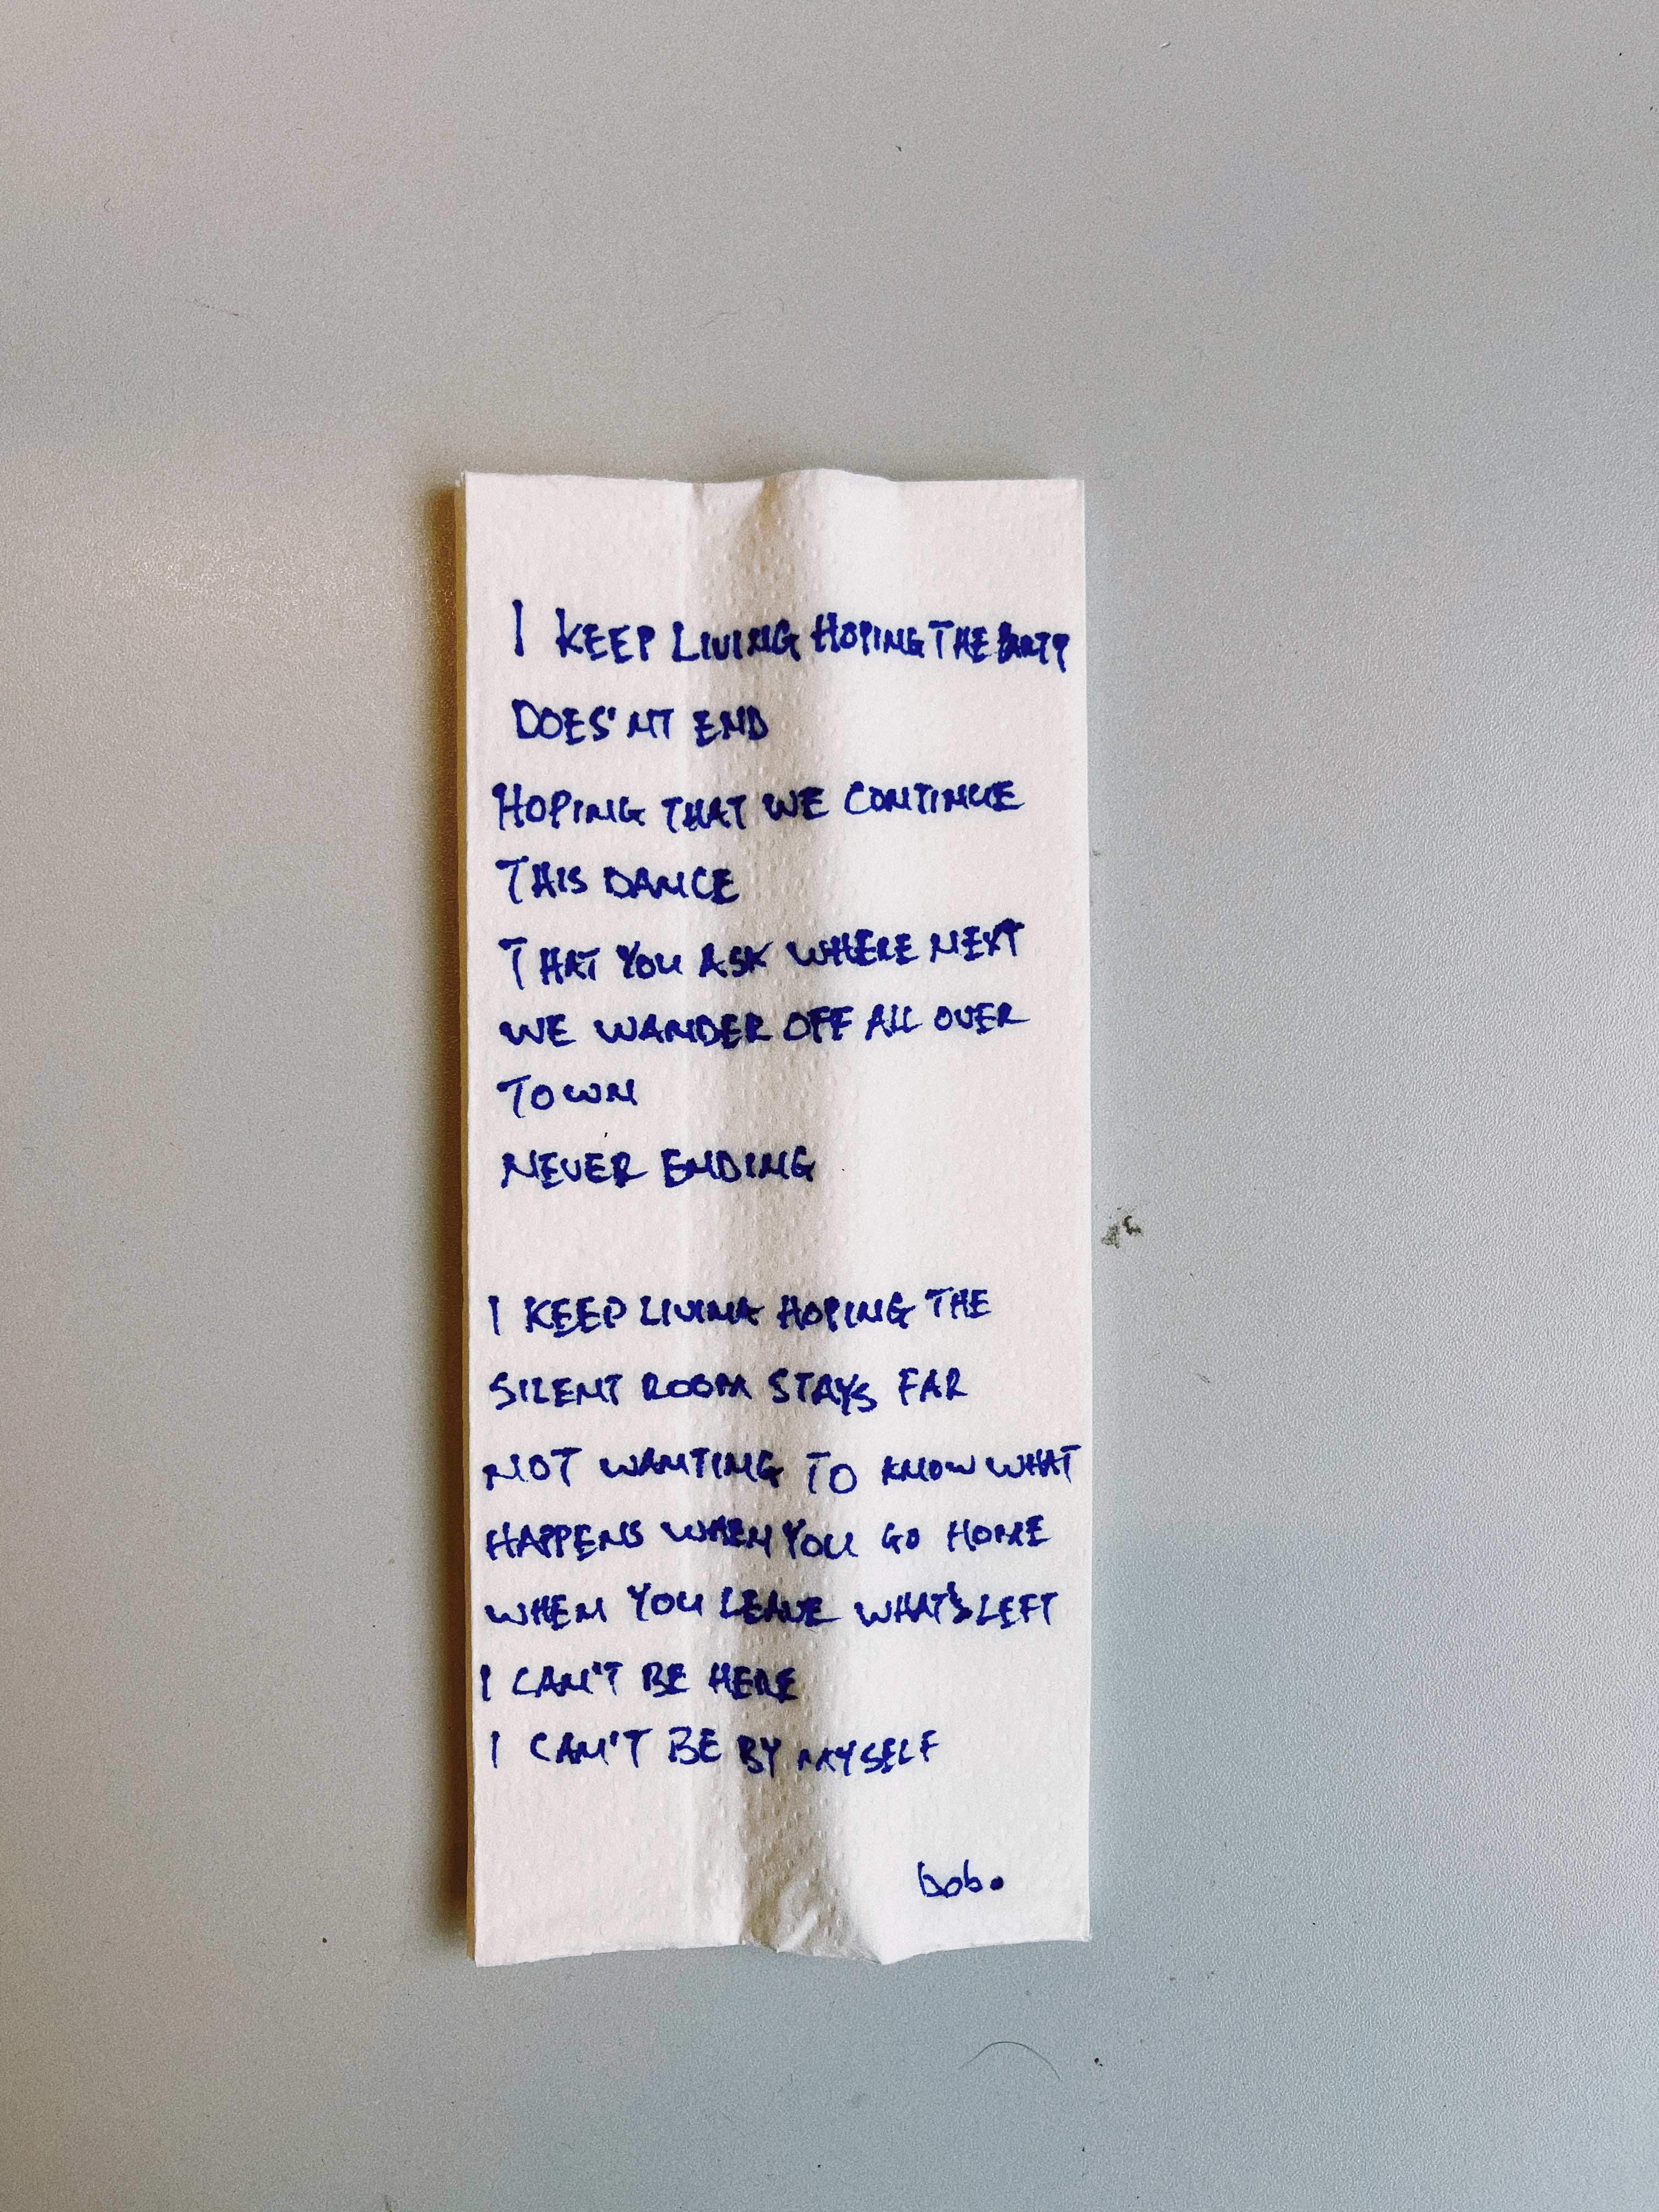 I KEEP LIVING HOPING THE PARTY
DOES'NT END
HOPING THAT WE CONTINUE
THIS DANCE
THAT YOU ASK WHERE NEXT
WE WANDER OFF ALL OVER
TOWN
NEVER ENDING
I KEEP LIVING HOPING THE
SILENT ROOM STAYS FAR
NOT WANTING TO KNOW WHAT
HAPPENS WHEN YOU GO HOME
WHEN YOU LEAVE WHAT'S LEFT
I CAN'T BE HERE
I CAN'T BE BY MYSELF
bob.